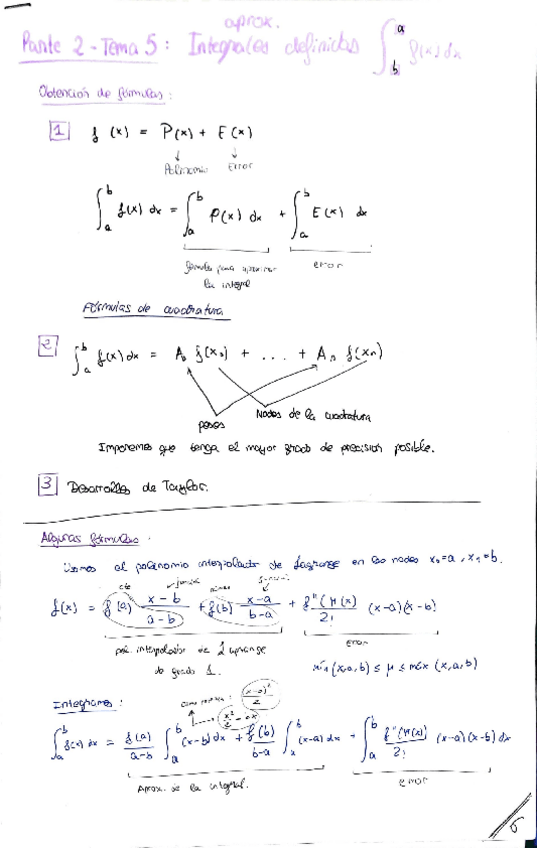 aprox.
Parte 2 - Tema 5: Integrales definidas ∫_b^a f(x) dx
Obtención de fórmulas:
1 f(x) = P(x) + E(x)
↓ ↓
Polinomio Error
∫_a^b f(x) dx = ∫_a^b P(x) dx + ∫_a^b E(x) dx
fórmula para aproximar error
la integral
Fórmulas de cuadratura
2 ∫_a^b f(x) dx = A_0 f(x_0) + ... + A_n f(x_n)
pesos Nodos de la cuadratura
Imponemos que tenga el mayor grado de precisión posible.
3 Desarrollos de Taylor.
Algunas fórmulas:
Usamos el polinomio interpolador de Lagrange en los nodos x_0=a, x_1=b.
cte función
f(x) = f(a) (x-b)/(a-b) + f(b) (x-a)/(b-a) + f''(μ(x))/2! (x-a)(x-b)
pol. interpolador de Lagrange error
de grado 1. mín(x,a,b) ≤ μ ≤ máx(x,a,b)
Integramos: (x-b)²/2
x²/2 - bx
∫_a^b f(x) dx = f(a)/(a-b) ∫_a^b (x-b) dx + f(b)/(b-a) ∫^b (x-a) dx + ∫_a^b f''(μ(x))/2! (x-a)(x-b) dx
Aprox. de la integral. error